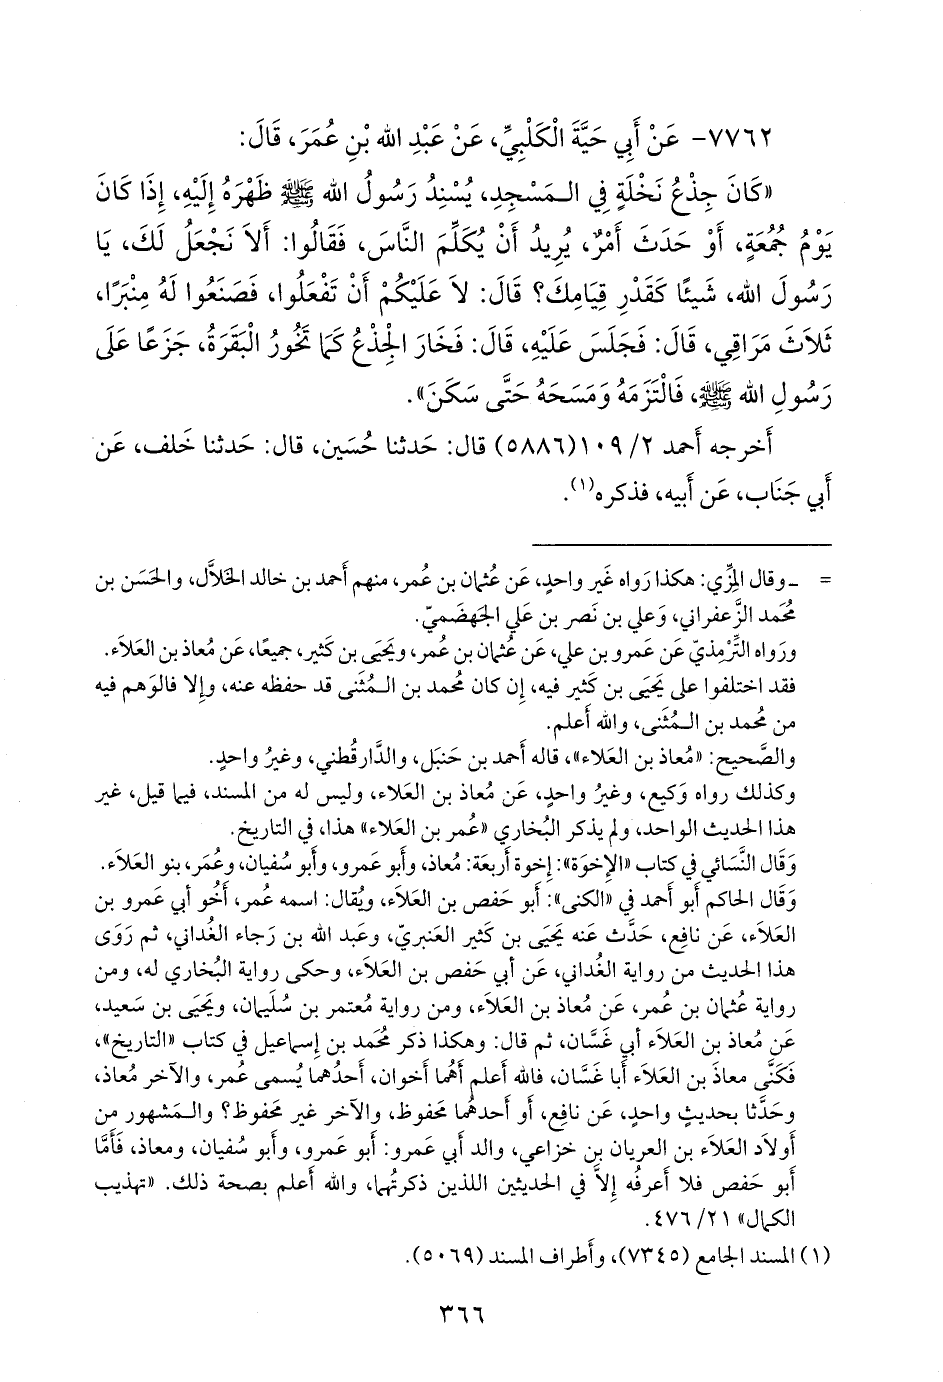 ٧٧٦٢- عَنْ أَبِي حَيَّةَ الْكَلْبِيِّ، عَنْ عَبْدِ الله بْنِ عُمَرَ، قَالَ:
«كَانَ جِذْعُ نَخْلَةٍ فِي الـمَسْجِدِ، يُسْنِدُ رَسُولُ الله ﷺ ظَهْرَهُ إِلَيْهِ، إِذَا كَانَ
يَوْمُ جُمُعَةٍ، أَوْ حَدَثَ أَمْرٌ، يُرِيدُ أَنْ يُكَلِّمَ النَّاسَ، فَقَالُوا: أَلاَ نَجْعَلُ لَكَ، يَا
رَسُولَ الله، شَيْئًا كَقَدْرِ قِيَامِكَ؟ قَالَ: لاَ عَلَيْكُمْ أَنْ تَفْعَلُوا، فَصَنَعُوا لَهُ مِنْبَرًا،
ثَلاَثَ مَرَاقِي، قَالَ: فَجَلَسَ عَلَيْهِ، قَالَ: فَخَارَ الْجِذْعُ كَمَا تَخُورُ الْبَقَرَةُ، جَزَعًا عَلَى
رَسُولِ الله ﷺ، فَالْتَزَمَهُ وَمَسَحَهُ حَتَّى سَكَنَ».
أَخرجه أَحمد ٢/ ١٠٩(٥٨٨٦) قال: حَدثنا حُسَين، قال: حَدثنا خَلف، عَن
أَبي جَنَاب، عَن أَبيه، فذكره(١).
= ـ وقال المِزِّي: هكذا رَواه غَير واحدٍ، عَن عُثمان بن عُمر، منهم أَحمد بن خالد الخَلاَّل، والحَسَن بن
مُحَمد الزَّعفراني، وَعلي بن نَصر بن عَلي الجَهضَميّ.
ورَواه التِّرْمِذيّ عَن عَمرو بن علي، عَن عُثمان بن عُمر، ويَحيَى بن كَثير، جميعًا، عَن مُعاذ بن العَلاَء.
فقد اختلفوا على يَحيَى بن كَثير فيه، إِن كان مُحمد بن الـمُثَنى قد حفظه عنه، وإِلا فالوَهم فيه
من مُحمد بن الـمُثَنى، والله أَعلم.
والصَّحيح: «مُعاذ بن العَلاء»، قاله أَحمد بن حَنبَل، والدَّارقُطني، وغيرُ واحدٍ.
وكذلك رواه وَكيع، وغيرُ واحدٍ، عَن مُعاذ بن العَلاَء، وليس له من المسند، فيما قيل، غير
هذا الحَديث الواحد، ولم يذكر البُخاري «عُمر بن العَلاَء» هذا، في التاريخ.
وَقال النَّسائي في كتاب «الإِخوَة»: إِخوة أَربعَة: مُعاذ، وأَبو عَمرو، وأَبو سُفيان، وعُمَر، بنو العَلاَء.
وَقال الحاكم أَبو أَحمد في «الكنى»: أَبو حَفص بن العَلاَء، ويُقال: اسمه عُمر، أَخُو أَبي عَمرو بن
العَلاَء، عَن نافِع، حَدَّث عنه يَحيَى بن كَثير العَنبريّ، وعَبد الله بن رَجاء الغُداني، ثم رَوَى
هذا الحَديث من رواية الغُداني، عَن أَبي حَفص بن العَلاَء، وحكى رواية البُخاري له، ومن
رواية عُثمان بن عُمر، عَن مُعاذ بن العَلاَء، ومن رواية مُعتمر بن سُلَيمان، ويَحيَى بن سَعيد،
عَن مُعاذ بن العَلاَء أَبي غَسَّان، ثم قال: وهكذا ذكر مُحَمد بن إِسماعيل في كتاب «التاريخ»،
فَكَنَّى معاذَ بن العَلاَء أَبا غَسَّان، فالله أَعلم أَنهُما أَخوان، أَحدُهما يُسمى عُمر، والآخر مُعاذ،
وحَدَّثا بحديثٍ واحدٍ، عَن نافِع، أَو أَحدهُما مَحفوظ، والآخر غير مَحفوظ؟ والـمَشهور من
أَولاَد العَلاَء بن العريان بن خزاعي، والد أَبي عَمرو: أَبو عَمرو، وأَبو سُفيان، ومعاذ، فَأَمَّا
أَبو حَفص فلا أَعرفُه إِلاَّ في الحَديثين اللذين ذكرتُهما، والله أَعلم بصحة ذلك. «تهذيب
الكمال» ٢١/ ٤٧٦.
(١) المسند الجامع (٧٣٤٥)، وأَطراف المسند (٥٠٦٩).
٣٦٦